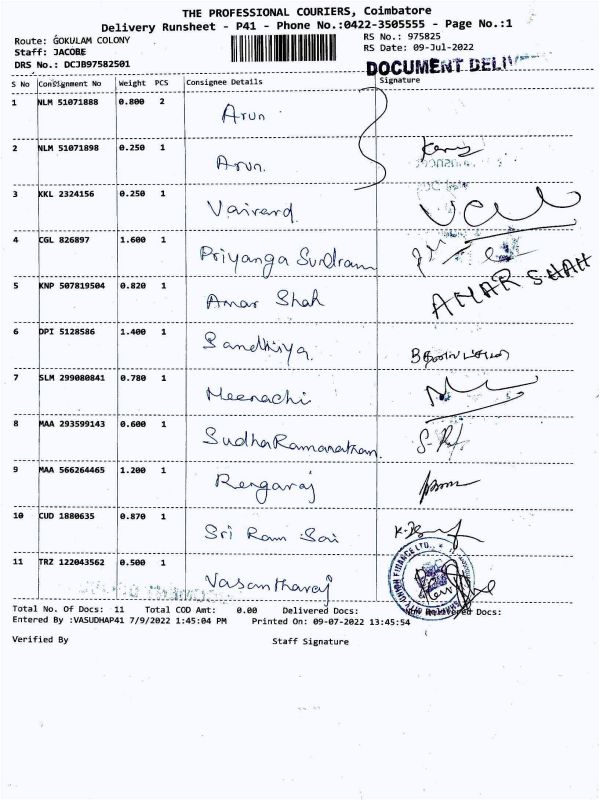 THE PROFESSIONAL COURIERS, Coimbatore
Delivery Runsheet - P41 - Phone No.:0422-3505555 - Page No.:1
Route: GOKULAM COLONY RS No.: 975825
Staff: JACOBE RS Date: 09-Jul-2022
DRS No.: DCJB97582501 DOCUMENT
S No Consignment No Weight PCS Consignee Details Signature
1 NLM 51071888 0.800 2 Arun
2 NLM 51071898 0.250 1 Arun.
3 KKL 2324156 0.250 1
4 CGL 826897 1.600 1 Priyanga Sundram
5 KNP 507819504 0.820 1 Amar Shah AMAR SHAH
6 DPI 5128586 1.400 1 Sandhiya.
7 SLM 299080841 0.780 1 Meenachi
8 MAA 293599143 0.600 1 Sudha Ramanathan.
9 MAA 566264465 1.200 1 Rengaraj
10 CUD 1880635 0.870 1 Sri Ram Sai
11 TRZ 122043562 0.500 1 Vasantharaj
Total No. Of Docs: 11 Total COD Amt: 0.00 Delivered Docs: Docs:
Entered By :VASUDHAP41 7/9/2022 1:45:04 PM Printed On: 09-07-2022 13:45:54
Verified By Staff Signature